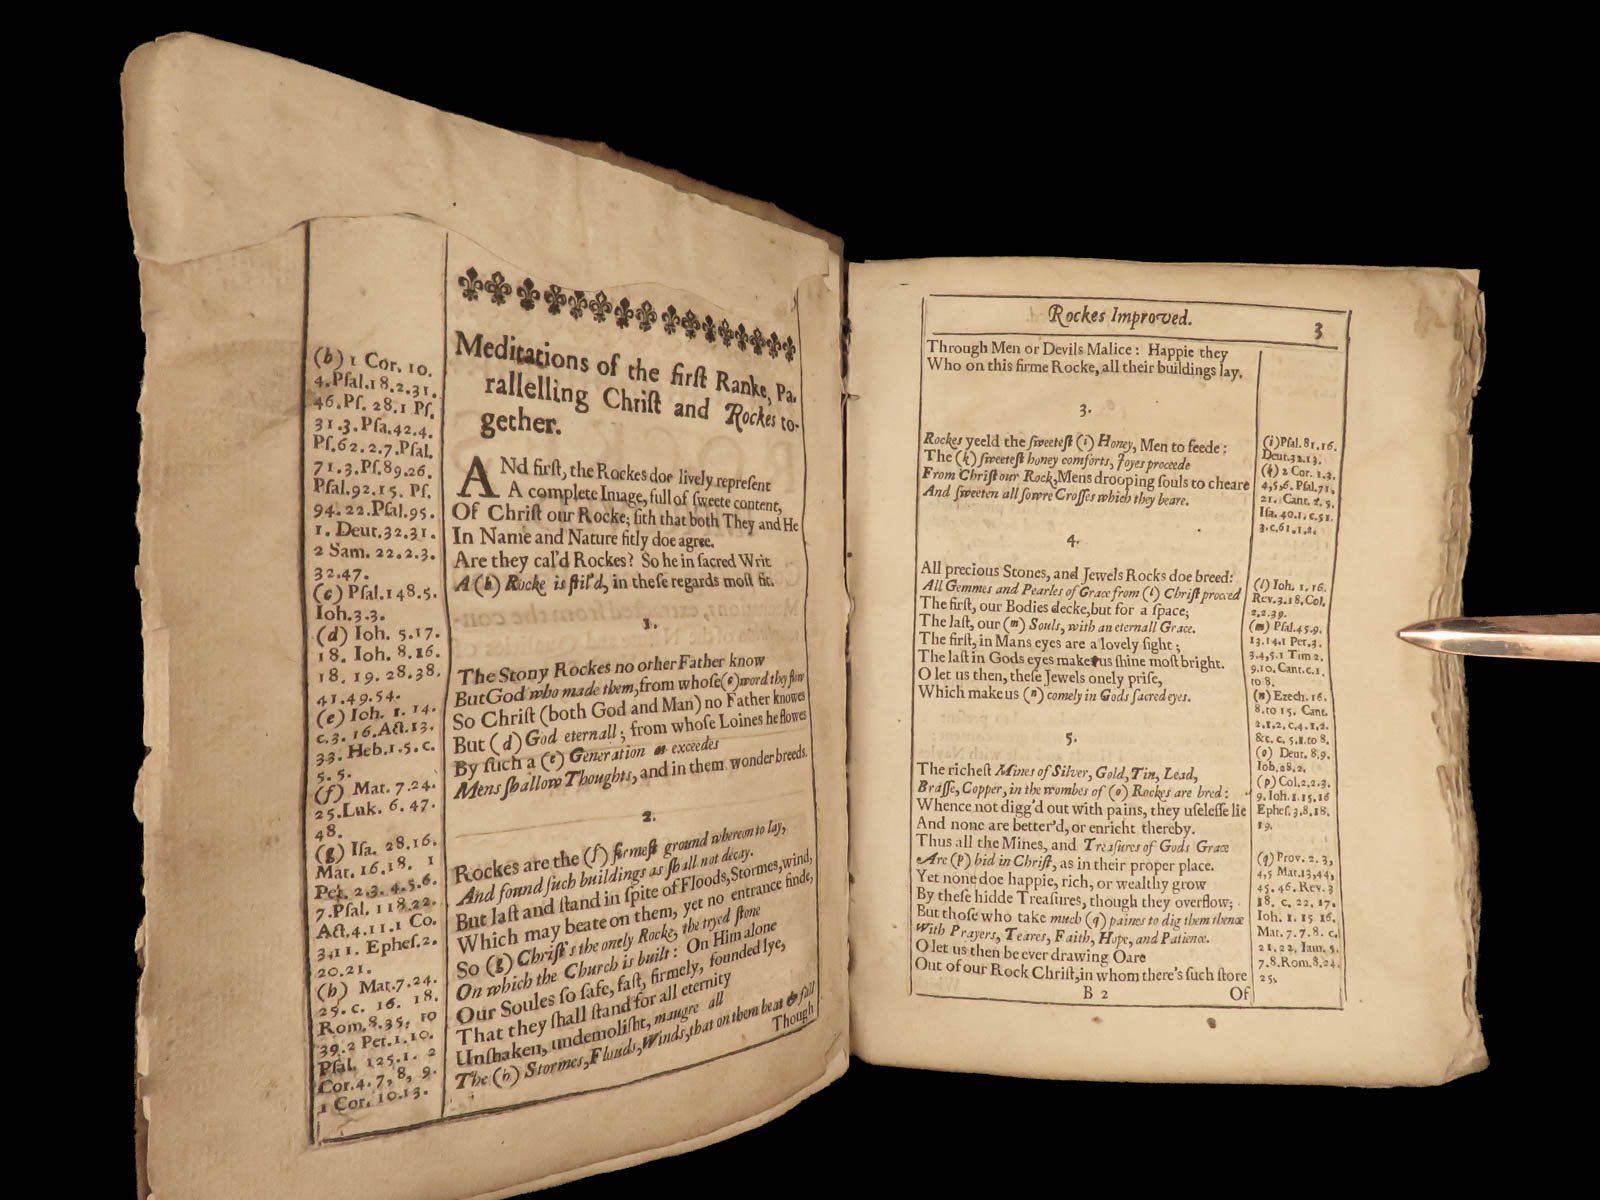 (b) 1 Cor. 10.
4. Psal. 18. 2. 31.
46. Ps. 28. 1 Ps.
31. 3. Psa. 42. 4.
Ps. 62. 2. 7. Psal.
71. 3. Ps. 89. 26.
Psal. 92. 15. Ps.
94. 22. Psal. 95.
1. Deut. 32. 31.
2 Sam. 22. 2. 3.
32. 47.
(c) Psal. 148. 5.
Ioh. 3. 3.
(d) Ioh. 5. 17.
18. Ioh. 8. 16.
18. 19. 28. 38.
41. 49. 54.
(e) Ioh. 1. 14.
c. 3. 16. Act. 13.
33. Heb. 1. 5. c.
5. 5.
(f) Mat. 7. 24.
25. Luk. 6. 47.
48.
(g) Isa. 28. 16.
Mat. 16. 18. 1
Pet. 2. 3. 4. 5. 6.
7. Psal. 118. 22.
Act. 4. 11. 1 Co.
3. 11. Ephes. 2.
20. 21.
(h) Mat. 7. 24.
25. c. 16. 18.
Rom. 8. 35, to
39. 2 Pet. 1. 10.
Psal. 125. 1. 2
Cor. 4. 7, 8, 9.
1 Cor. 10. 13.
Meditations of the first Ranke, Pa-
rallelling Christ and Rockes to-
gether.
ANd first, the Rockes doe lively represent
A complete Image, full of sweete content,
Of Christ our Rocke; sith that both They and He
In Name and Nature fitly doe agree.
Are they cal'd Rockes? So he in sacred Writ
A (b) Rocke is stil'd, in these regards most fit.
1.
The Stony Rockes no other Father know
But God who made them, from whose (c) word they flow
So Christ (both God and Man) no Father knowes
But (d) God eternall; from whose Loines he flowes
By such a (e) Generation as exceedes
Mens shallow Thoughts, and in them wonder breeds.
2.
Rockes are the (f) firmest ground whereon to lay,
And found such buildings as shall not decay.
But last and stand in spite of Floods, Stormes, wind,
Which may beate on them, yet no entrance finde,
So (g) Christ's the onely Rocke, the tryed stone
On which the Church is built: On Him alone
Our Soules so safe, fast, firmely, founded lye,
That they shall stand for all eternity
Unshaken, undemolisht, maugre all
The (h) Stormes, Flouds, Winds, that on them beat & fall
Though
Rockes Improved.
3
Through Men or Devils Malice: Happie they
Who on this firme Rocke, all their buildings lay.
3.
Rockes yeeld the sweetest (i) Honey, Men to feede:
The (k) sweetest honey comforts, Joyes proceede
From Christ our Rock, Mens drooping souls to cheare
And sweeten all sowre Crosses which they beare.
4.
All precious Stones, and Jewels Rocks doe breed:
All Gemmes and Pearles of Grace from (l) Christ proceed
The first, our Bodies decke, but for a space;
The last, our (m) Souls, with an eternall Grace.
The first, in Mans eyes are a lovely sight;
The last in Gods eyes make us shine most bright.
O let us then, these Jewels onely prise,
Which make us (n) comely in Gods sacred eyes.
5.
The richest Mines of Silver, Gold, Tin, Lead,
Brasse, Copper, in the wombes of (o) Rockes are bred:
Whence not digg'd out with pains, they uselesse lie
And none are better'd, or enricht thereby.
Thus all the Mines, and Treasures of Gods Grace
Are (p) hid in Christ, as in their proper place.
Yet none doe happie, rich, or wealthy grow
By these hidde Treasures, though they overflow;
But those who take much (q) paines to dig them thence
With Prayers, Teares, Faith, Hope, and Patience.
O let us then be ever drawing Oare
Out of our Rock Christ, in whom there's such store
B 2
Of
(i) Psal. 81. 16.
Deut. 32. 13.
(k) 2 Cor. 1. 3.
4, 5, 6. Psal. 71.
21. Cant. 2. 5.
Isa. 40. 1. c. 51.
3. c. 61. 1. 2.
(l) Ioh. 1. 16.
Rev. 3. 18. Col.
2. 2. 39.
(m) Psal. 45. 9.
13. 14. 1 Pet. 3.
3. 4, 5. 1 Tim 2.
9. 10. Cant. c. 1.
to 8.
(n) Ezech. 16.
8. to 15. Cant.
2. 1. 2. c. 4. 1. 2.
&c. c. 5. 1. to 8.
(o) Deut. 8. 9.
Iob. 28. 2.
(p) Col. 2. 2. 3.
9. Ioh. 1. 15. 16
Ephes. 3. 8. 18.
19.
(q) Prov. 2. 3,
4, 5 Mat. 13, 44,
45. 46. Rev. 3
18. c. 22. 17.
Ioh. 1. 15 16.
Mat. 7. 7. 8. c.
21. 22. Iam. 5.
7. 8. Rom. 8. 24.
25.